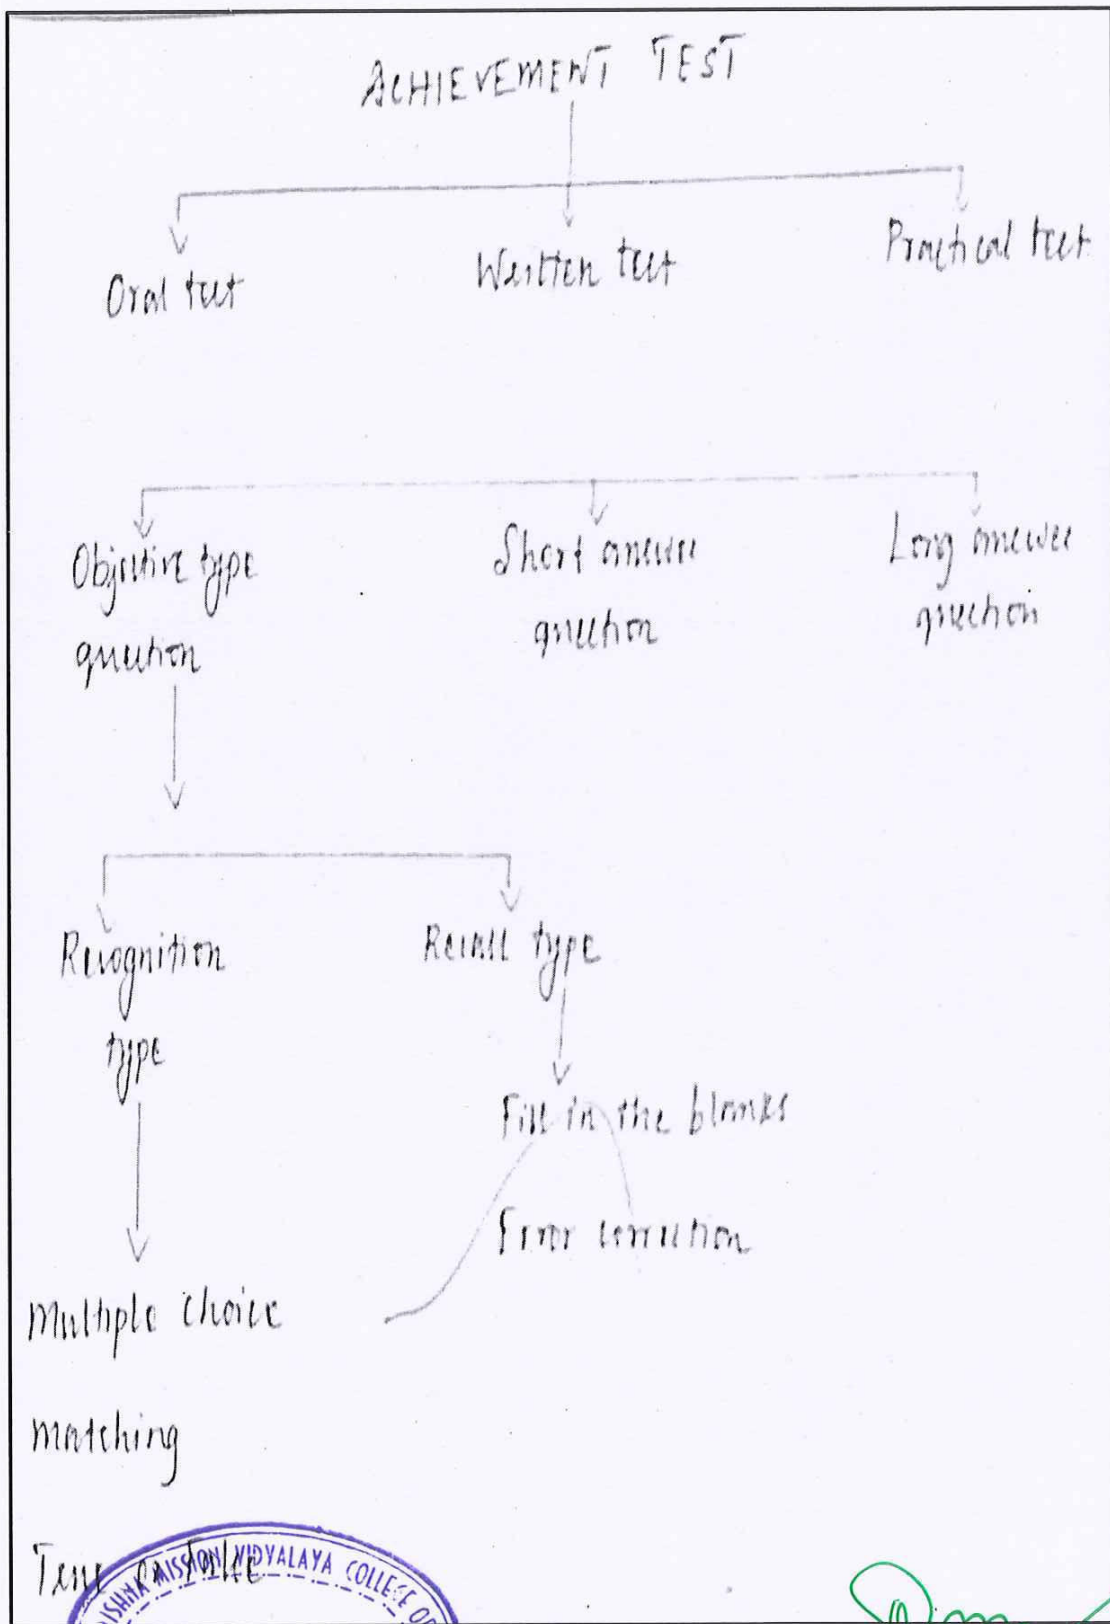 ACHIEVEMENT TEST
Oral test
Written test
Practical test
Objective type
question
Short answer
question
Long answer
question
Recognition
type
Recall type
Fill in the blanks
Error correction
Multiple choice
Matching
True or False
MISSION VIDYALAYA COLLEGE OF